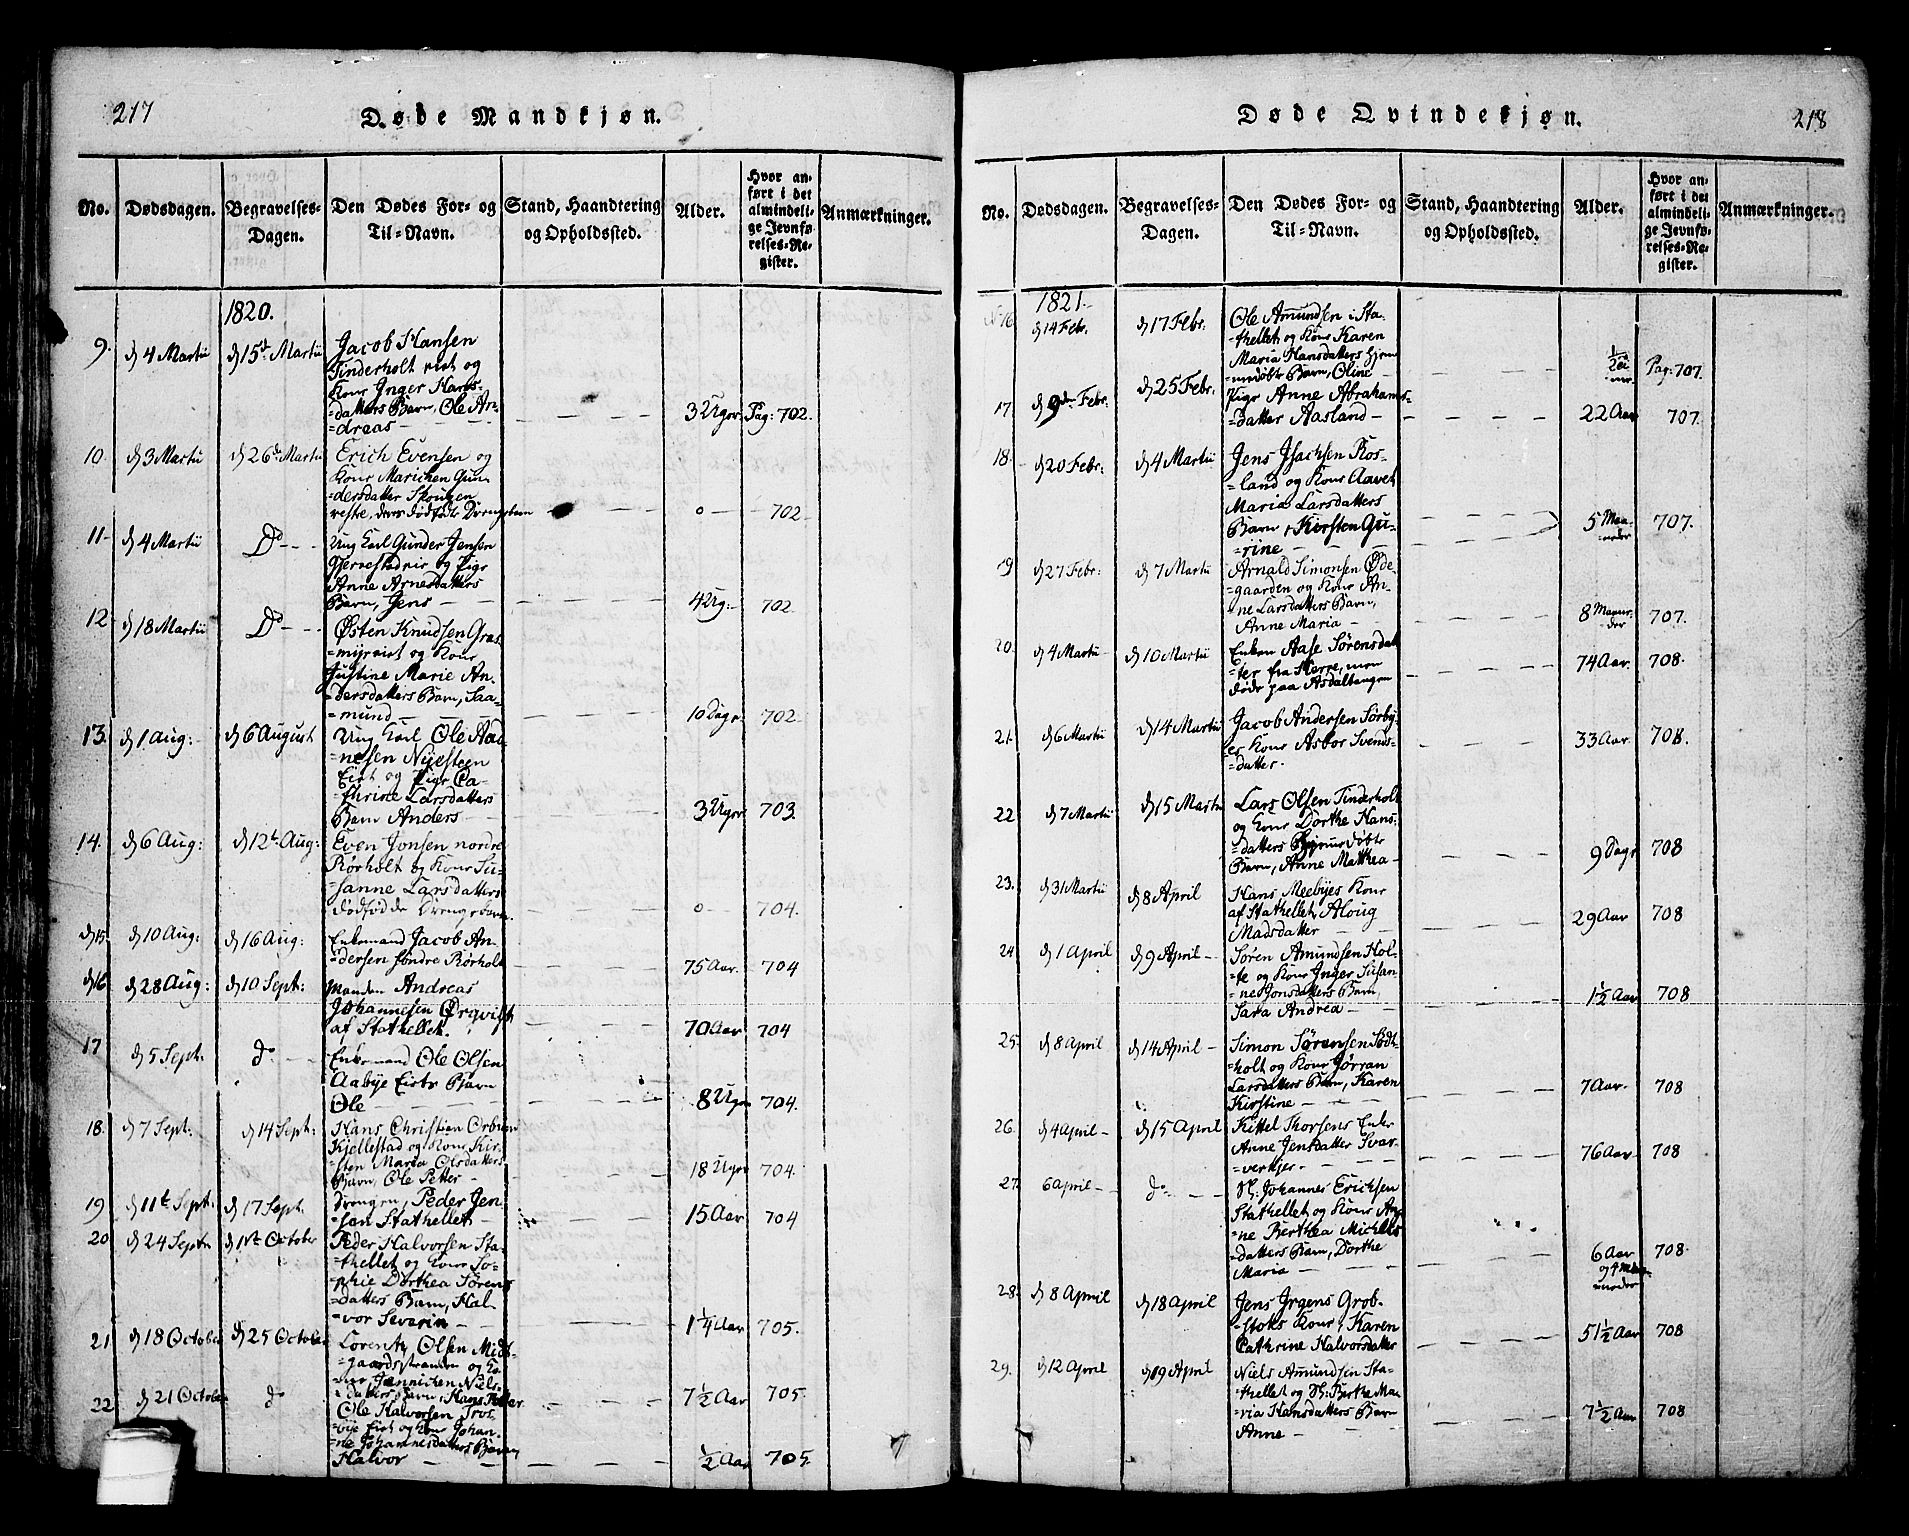 217
Døde Mandkjøn.
No.
Dødsdagen.
Begravelses-
Dagen.
Den Dødes For- og
Til-Navn.
Stand, Haandtering
og Opholdssted.
Alder.
Hvor an-
ført i det
almindeli-
ge Jevnfø-
relses-Re-
gister.
Anmærkninger.
1820.
9.
d 4 Martii
d 15de Martii
Jacob Hansen
Tinderholt eiet og
Kone Inger Hans-
=datters Barn, Ole An-
=dreas
3 Uger
Pag: 702.
10.
d 3 Martii
d 26de Martii
Erich Evensen og
Kone Marichen Gun
=dersdatter
dødfødte Drengebarn
0
702
11.
d 4 Martii
Do
Ung Karl Gunder Jensen
og Pige
Anne Arnesdatters
Barn, Jens
4 Ug:
702
12
d 18 Martii
Do
Østen Knudsen Gras-
=myr eiet og Kone
Justine Marie An-
=dersdatters Barn, Saa-
=mund
10 Dage
702
13.
d 1 Aug:
d 6 August
Ung Karl Ole Aad-
=nesen Nyesteen
Eiet og Pige Ca-
=thrine Larsdatters
Barn Anders
3 Uger
703.
14.
d 6 Aug:
d 12te Aug:
Even Jonsen nordre
Rørholt og Kone Su-
=sanne Larsdatters
dødfødde Drengebarn
0
704.
d 15
d 10 Aug:
d 16 Aug:
Enkemand Jacob An-
=dersen søndre Rørholt
75 Aar.
704
d 16
d 28 Aug:
d 10 Sept:
Manden Andreas
Johannesen Ørqvist
af Stathellet.
70 Aar
704
17
d 5 Sept.
do
Enkemand Ole Olsen
Aabye Eiets Barn
Ole
8 Uger
704.
18.
d 7 Sept.
d 14 Sept:
Hans Christian
Kjellestad og Kone Kir-
=sten Maria Olsdatters
Barn, Ole Petter
18 Uger
704.
19
d 11te Sept.
d 17 Sept.
Drengen Peder Jen
=sen Stathellet
15 Aar
704
20
d 24 Septr
d 1ste October
Peder Halvorsen Sta-
=thellet og Kone So-
=phie Dorthea Sørens
=datters Barn, Hal
=vor Severin
1 1/4 Aar
705.
21
d 18 October
d 25 October
Lorentz Olsen Midt-
=gaardsstranden og Ko-
=ne Jannichen Niels-
=datters Barn, Hans Petter
7 1/2 Aar
705
22
d 21 October
do
Ole Halvorsen Tros-
=vie Eiet og Kone Johan-
=ne Johannesdatters Barn
Halvor
1/2 Aar
705.
218
Døde Qvindekjøn.
No.
Dødsdagen.
Begravelses-
Dagen.
Den Dødes For- og
Til-Navn.
Stand, Haandtering
og Opholdssted.
Alder.
Hvor an-
ført i det
almindeli-
ge Jevnfø-
relses-Re-
gister.
Anmærkninger.
1821
16
d 14 Febr.
d 17 Febr:
Ole Amundsen i Sta-
=thellet og Kone Karen
Maria Hansdatters hjem
=medøbte Barn, Oline
Pag: 707.
17.
d 9de Febr.
d 25 Febr.
Pige Anne Abrahams-
=datter Aasland
22 Aar
707.
18
d 20 Febr:
d 4 Martii
Jens Isachsen Ros-
=land og Kone
Maria Larsdatters
Barn, Kirsten Gu-
=rine
5 Maa-
=neder
707.
19
d 27 Febr:
d 7 Martii
Arnald Simonsen Øde-
=gaarden og Kone An-
=ne Larsdatters Barn,
Anne Maria
8 Maane-
der
707.
20
d 4 Martii
d 10 Martii
Enken Aase Sørensdat
=ter fra Herre, men
døde paa Asdaltangen
74 Aar.
708.
21.
d 6 Martii
d 14 Martii
Jacob Andersen Sørby-
=es Kone Asbor Svends-
=datter.
33 Aar
708.
22
d 7 Martii
d 15 Martii
Lars Olsen Tinderholt
og Kone Dorthe Hans-
=datters Hjemmedøbte
Barn, Anne Matthea
9 Dage
708
23.
d 31 Martii
d 8 April
Hans Meebyes Kone
af Stathellet, Aloug
Madsdatter
29 Aar
708
24
d 1 April
d 9 April
Søren Amundsen Hol-
=te og Kone Inger Susan
=ne Jonsdatters Barn,
Sara Andrea
1 1/2 Aar
708
25.
d 8 April
d 14 April
Simon Sørensen
=holt og Kone Jørran
Larsdatters Barn, Karen
Kirstine
7 Aar.
708
26.
d 4 April
d 15 April
Kittel Thorsens Enke
Anne Jensdatter Svar-
=verkjer.
76 Aar
708
27.
6 April
do
Johannes Erichsen
Stathellet og Kone An
=ne Berthea Michels
=datters Barn, Dorthe
Maria
6 Aar
og 4 Maa-
=neder
708.
28.
d 8 April
d 18 April
Jens Jrgens Grob-
=stoks Kone, Karen
Cathrine Halvorsdatter
51 1/2 Aar
708
29.
d 12 April
d 19 April
Niels Amundsen Sta-
=thellet og Berthe Ma
=ria Hansdatters Barn
Anne
7 1/2 Aar
708